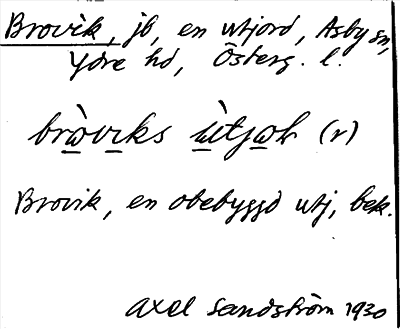 Brovik, jb, en utjord, Asby sn,
Ydre hd, Österg. l.
bròviks ùtjoꝛ (r)
Brovik, en obebyggd utj, bek.
Axel Sandström 1930